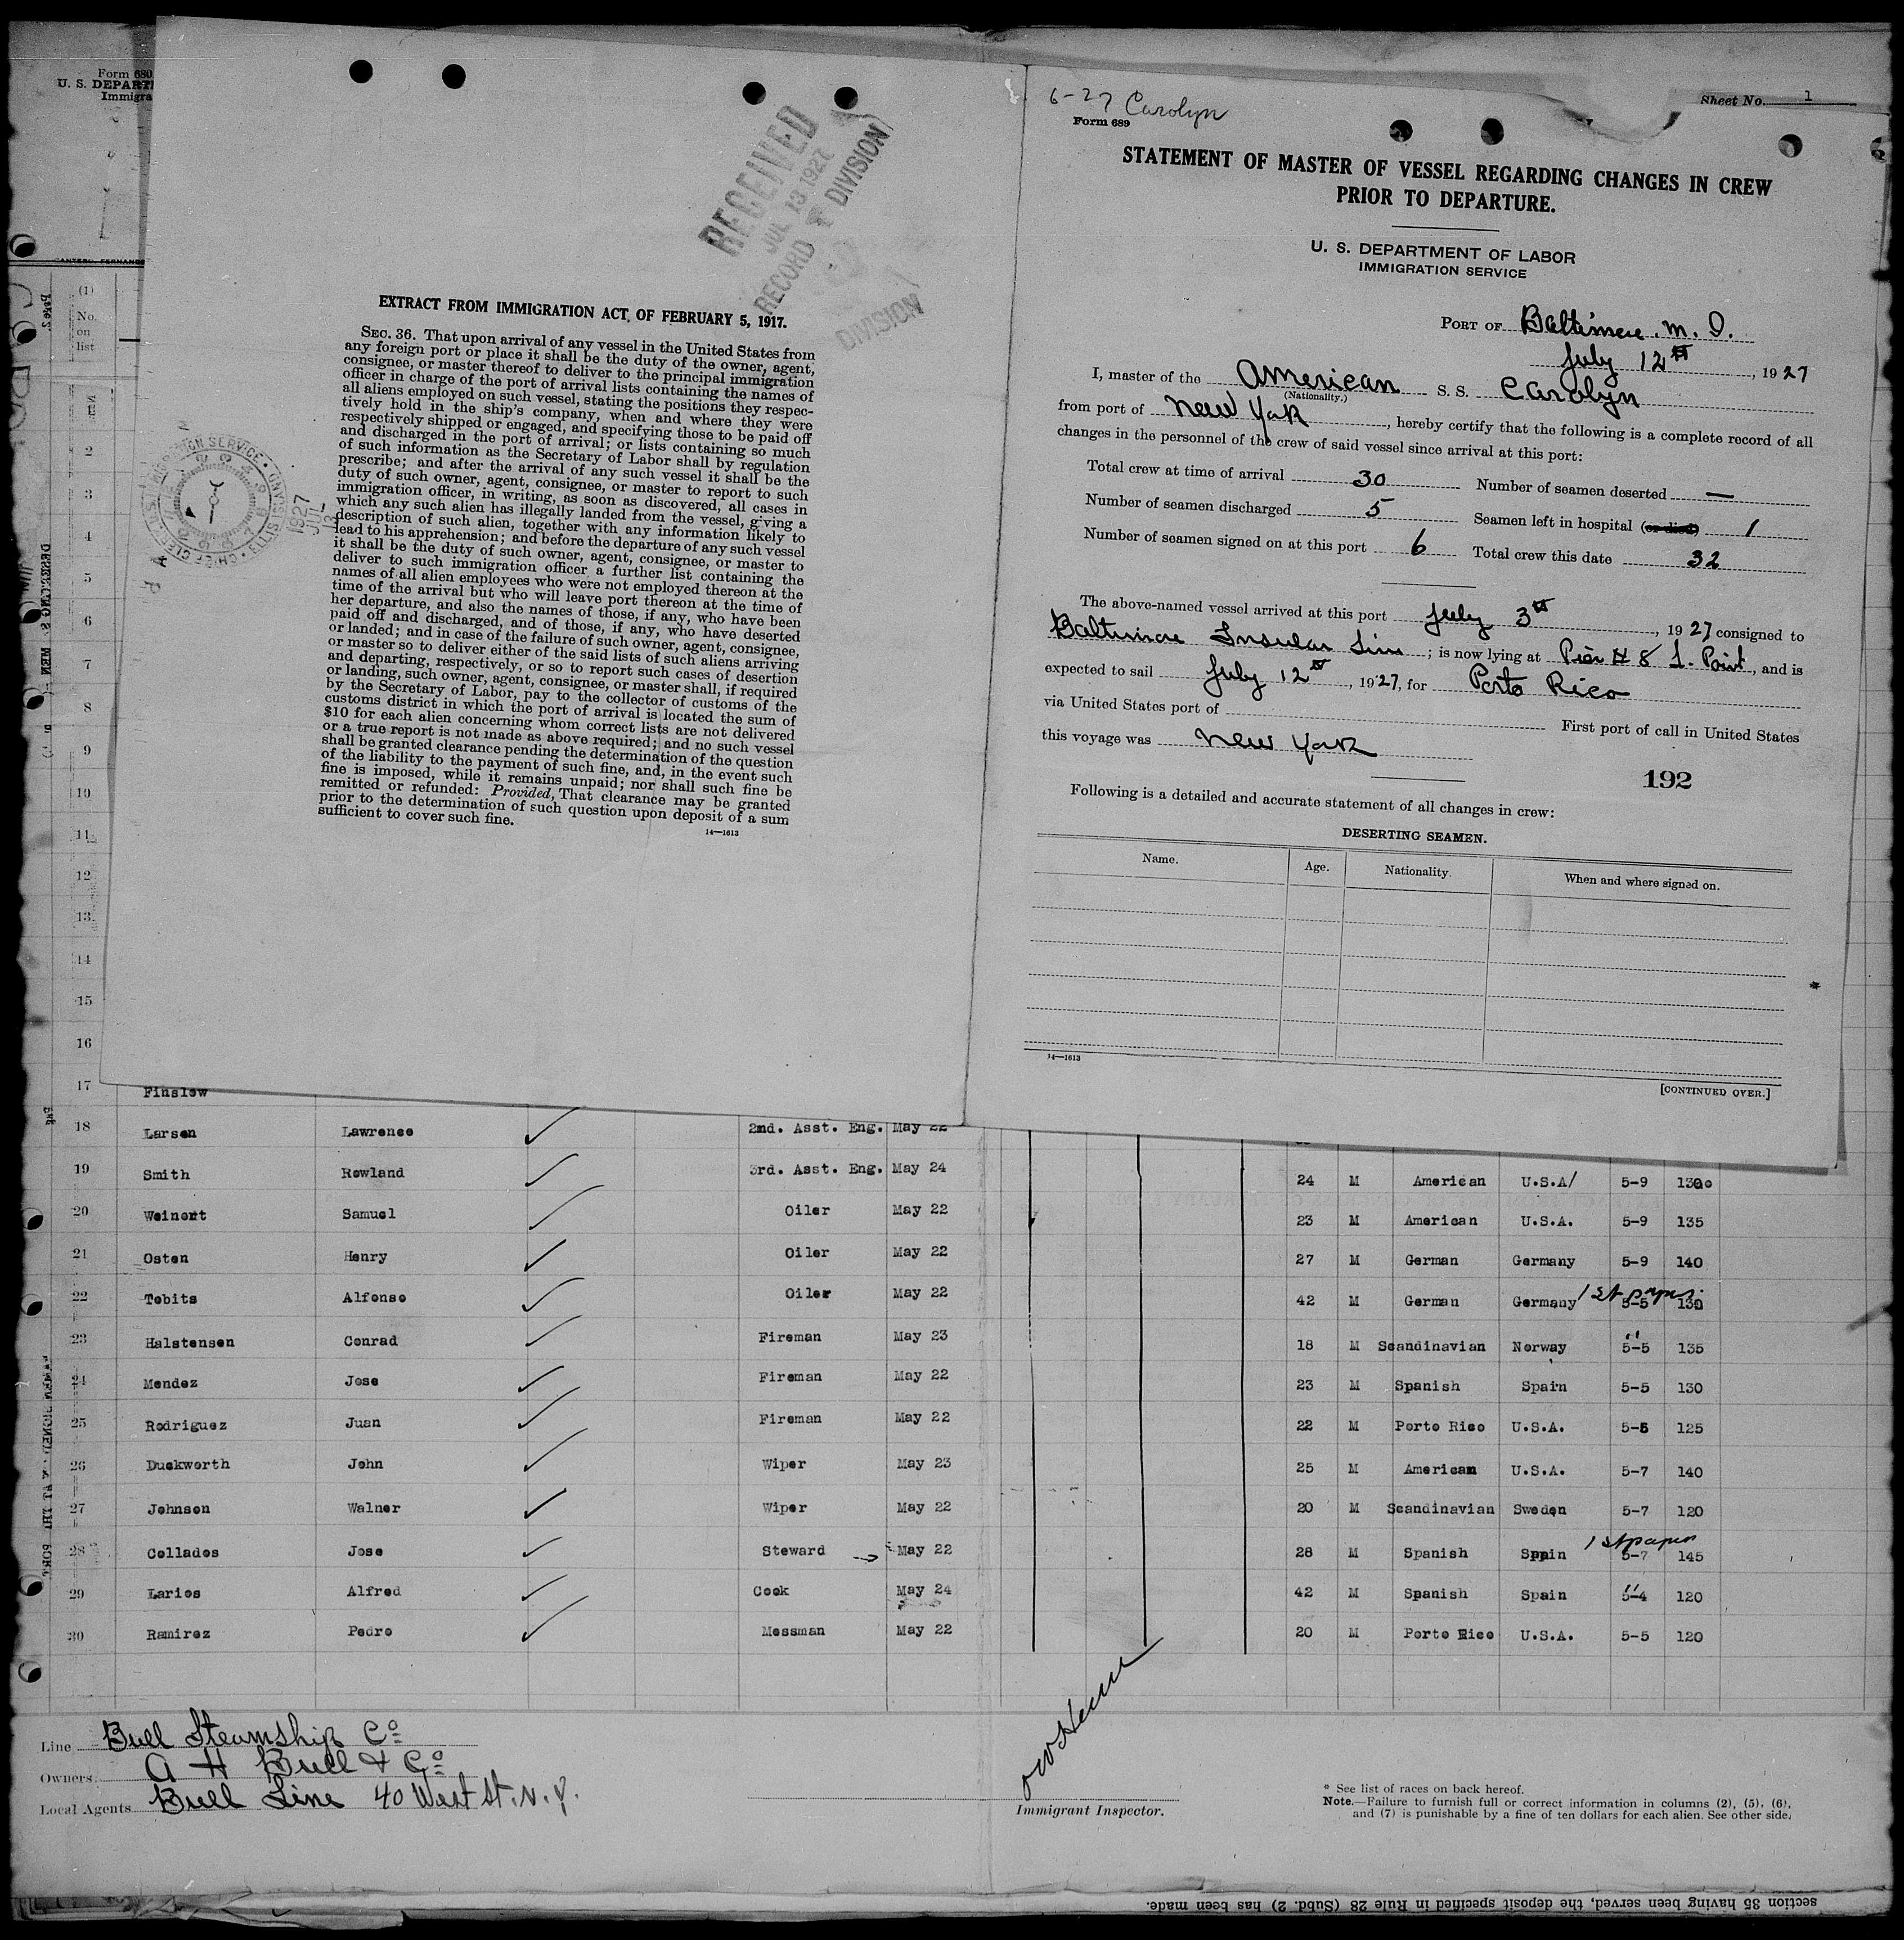 Form 680
U. S. DEPART
Immigra
Sheet No. 1
(1)
No.
on
list
RECEIVED
JUL 13 1927
RECORD DIVISION
DIVISION
EXTRACT FROM IMMIGRATION ACT, OF FEBRUARY 5, 1917.
SEC. 36. That upon arrival of any vessel in the United States from
any foreign port or place it shall be the duty of the owner, agent,
consignee, or master thereof to deliver to the principal immigration
officer in charge of the port of arrival lists containing the names of
all aliens employed on such vessel, stating the positions they respec-
tively hold in the ship's company, when and where they were
respectively shipped or engaged, and specifying those to be paid off
and discharged in the port of arrival; or lists containing so much
of such information as the Secretary of Labor shall by regulation
prescribe; and after the arrival of any such vessel it shall be the
duty of such owner, agent, consignee, or master to report to such
immigration officer, in writing, as soon as discovered, all cases in
which any such alien has illegally landed from the vessel, giving a
description of such alien, together with any information likely to
lead to his apprehension; and before the departure of any such vessel
it shall be the duty of such owner, agent, consignee, or master to
deliver to such immigration officer a further list containing the
names of all alien employees who were not employed thereon at the
time of the arrival but who will leave port thereon at the time of
her departure, and also the names of those, if any, who have been
paid off and discharged, and of those, if any, who have deserted
or landed; and in case of the failure of such owner, agent, consignee,
or master so to deliver either of the said lists of such aliens arriving
and departing, respectively, or so to report such cases of desertion
or landing, such owner, agent, consignee, or master shall, if required
by the Secretary of Labor, pay to the collector of customs of the
customs district in which the port of arrival is located the sum of
$10 for each alien concerning whom correct lists are not delivered
or a true report is not made as above required; and no such vessel
shall be granted clearance pending the determination of the question
of the liability to the payment of such fine, and, in the event such
fine is imposed, while it remains unpaid; nor shall such fine be
remitted or refunded: Provided, That clearance may be granted
prior to the determination of such question upon deposit of a sum
sufficient to cover such fine.
14—1613
6-27 Carolyn
Form 689
STATEMENT OF MASTER OF VESSEL REGARDING CHANGES IN CREW
PRIOR TO DEPARTURE.
U. S. DEPARTMENT OF LABOR
IMMIGRATION SERVICE
PORT OF Baltimore. M. D.
July 12th, 1927
I, master of the American S. S. Carolyn
(Nationality.)
from port of New York, hereby certify that the following is a complete record of all
changes in the personnel of the crew of said vessel since arrival at this port:
Total crew at time of arrival 30 Number of seamen deserted —
Number of seamen discharged 5 Seamen left in hospital (or died) 1
Number of seamen signed on at this port 6 Total crew this date 32
The above-named vessel arrived at this port July 3rd, 1927 consigned to
Baltimore Insular Line; is now lying at Pier # 8 L. Point, and is
expected to sail July 12th, 1927, for Porto Rico
via United States port of First port of call in United States
this voyage was New York
192
Following is a detailed and accurate statement of all changes in crew:
DESERTING SEAMEN.
Name. Age. Nationality. When and where signed on.
14—1613
[CONTINUED OVER.]
2
3
4
5
6
7
8
9
10
11
12
13
14
15
16
17 Finslow
18 Larsen Lawrence 2nd. Asst. Eng. May 22
19 Smith Rowland 3rd. Asst. Eng. May 24 24 M American U.S.A/ 5-9 130
20 Weinert Samuel Oiler May 22 23 M American U.S.A. 5-9 135
21 Osten Henry Oiler May 22 27 M German Germany 5-9 140
22 Tobits Alfonso Oiler May 22 42 M German Germany 1st paper 5-5 130
23 Halstensen Conrad Fireman May 23 18 M Scandinavian Norway " 5-5 135
24 Mendez Jose Fireman May 22 23 M Spanish Spain 5-5 130
25 Rodriguez Juan Fireman May 22 22 M Porto Rico U.S.A. 5-5 125
26 Duckworth John Wiper May 23 25 M American U.S.A. 5-7 140
27 Johnson Walner Wiper May 22 20 M Scandinavian Sweden 5-7 120
28 Collados Jose Steward May 22 28 M Spanish Spain 1st paper 5-7 145
29 Larios Alfred Cook May 24 42 M Spanish Spain " 5-4 120
30 Ramirez Pedro Messman May 22 20 M Porto Rico U.S.A. 5-5 120
Line Bull Steamship Co
Owners A H Bull & Co
Local Agents Bull Line 40 West St. N. Y.
Immigrant Inspector.
* See list of races on back hereof.
Note.—Failure to furnish full or correct information in columns (2), (5), (6),
and (7) is punishable by a fine of ten dollars for each alien. See other side.
section 35 having been served, the deposit specified in Rule 28 (Subd. 2) has been made.